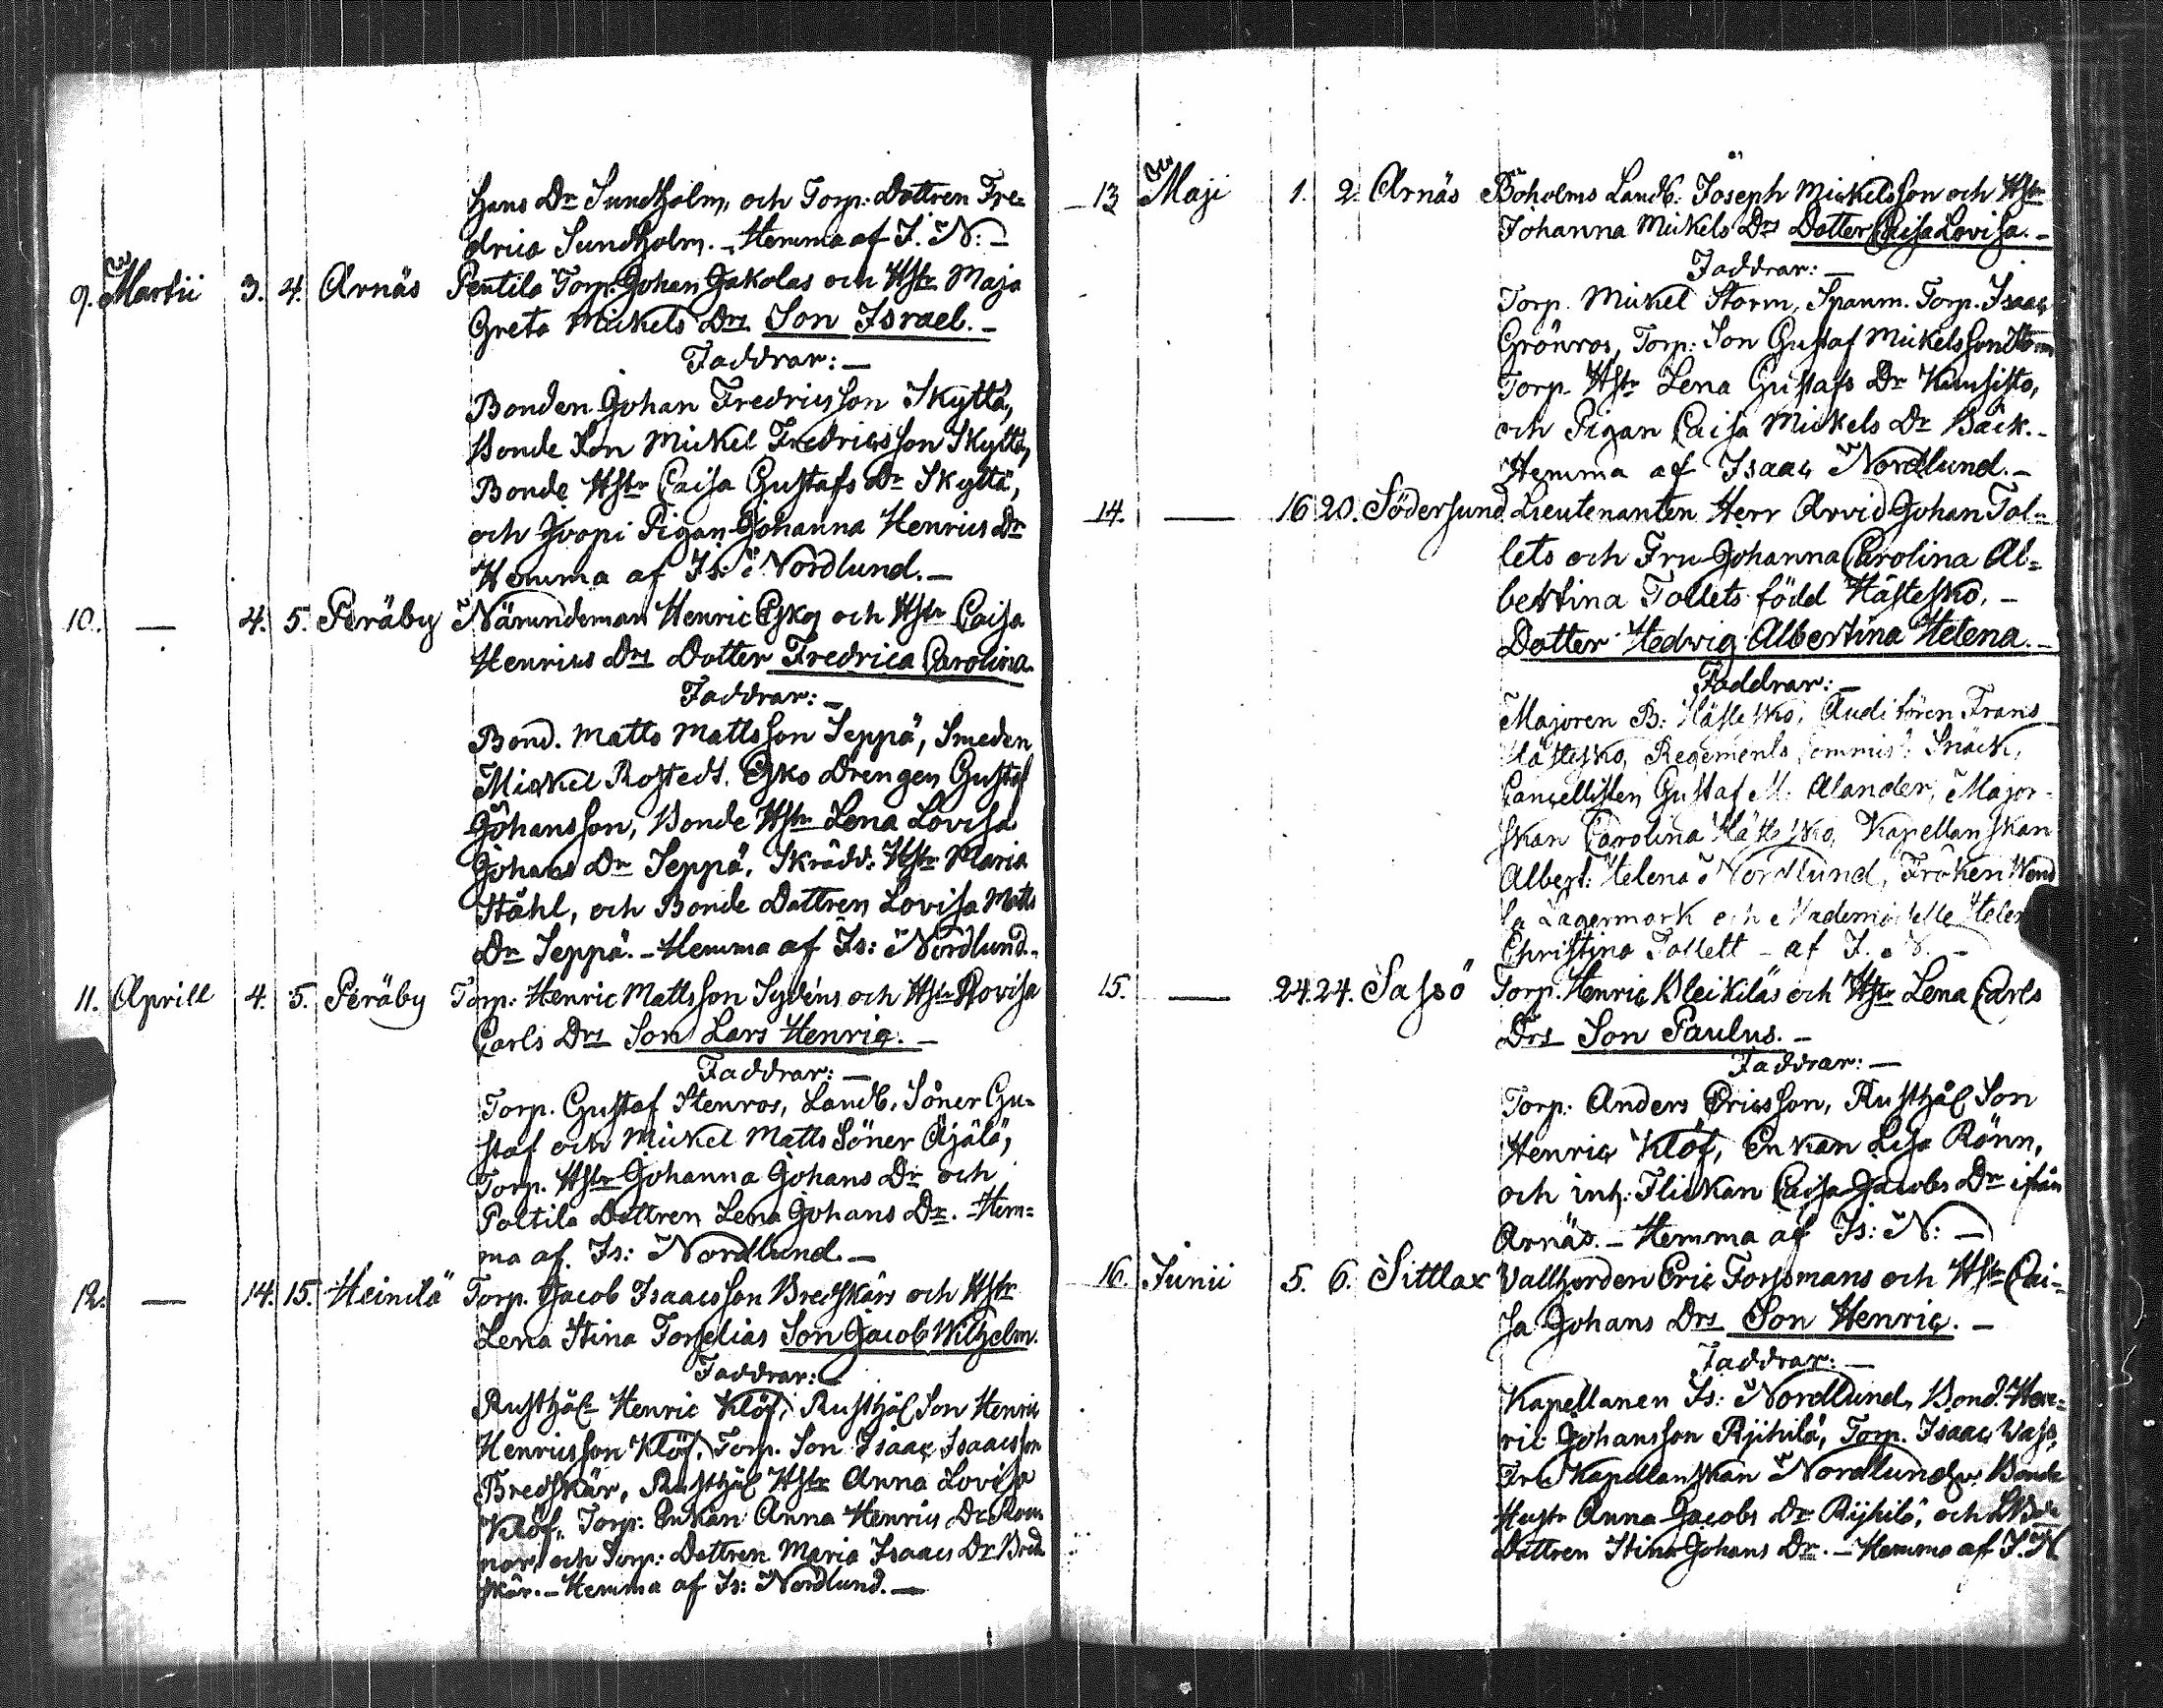 Hans Dr Sundholm, och Torp: Dottren Fre=
drica Sundholm. - Hemma af I. N: -
9. Martii 3. 4. Arnäs Pentilä Torp. Johan Jakolas och Hstr Maja
Greta Mickels Drs Son Israel. -
Faddrar: -
Bonden Johan Fredricsson Skyttä,
Bonde Son Mickel Fredricsson Skyttä,
Bonde Hstr Caisa Gustafs Dr Skyttä,
och Joopi Pigan Johanna Henrics Dr
Hemma af Is: Nordlund. -
10. — 4. 5. Peräby Nämndeman Henric Esko och Hstr Caisa
Henrics Drs Dotter Fredrica Carolina.
Faddrar: -
Bond. Matts Mattsson Seppä, Smeden
Mickel Rostedt. Esko Drengen Gustaf
Johansson, Bonde Hstr Lena Lovisa
Johans Dr Seppä, Skrädd: Hstr Maria
Ståhl, och Bonde Dottren Lovisa Matts
Dr Seppä. - Hemma af Is: Nordlund. -
11. Aprill 4. 5. Peräby Torp: Henric Mattsson Sydéns och Hstr Lovisa
Carls Drs Son Lars Henric. -
Faddrar: -
Torp. Gustaf Stenros, Landb. Söner Gu-
staf och Mickel Matts Söner Äijälä,
Torp. Hstr Johanna Johans Dr och
Poltila Dottren Lena Johans Dr. - Hem=
ma af Is: Nordlund. -
12. — 14. 15. Heinilä Torp. Jacob Isaacsson Bredskärs och Hstr
Lena Stina Torselias Son Jacob Wilhelm.
Faddrar: -
Rusthål Henric Klöf, Rusthål Son Henric
Henricsson Klöf, Torp. Son Isaac Isaacsson
Bredskär, Rusthål Hstr Anna Lovisa
Klöf, Torp: Enkan Anna Henrics Dr
och Torp: Dottren Maria Isaacs Dr Bred
skär. - Hemma af Is: Nordlund. -
13 Maji 1. 2. Arnäs Böholms Landb. Joseph Mickelsson och Hstr
Johanna Mickels Drs Dotter Caisa Lovisa. -
Faddrar: -
Torp. Mickel Storm, Spanm. Torp. Isaac
Grönros, Torp: Son Gustaf Mickelsson Storm
Torp. Hstr Lena Gustafs Dr Kansisto,
och Pigan Caisa Mickels Dr Bäck. -
Hemma af Isaac Nordlund. -
14. — 16 20. Södersund Lieutenanten Herr Arvid Johan Tol-
lets och Fru Johanna Carolina Al=
bertina Tollets född Hästesko. -
Dotter Hedwig Albertina Helena. -
Faddrar: -
Majoren B: Hästesko, Auditören Frans
Hästesko, Regements Commis: Snäck,
Cancellisten Gustaf M. Alander, Major-
skan Carolina Hästesko, Kapellanskan
Albert: Helena Nordlund, Fröken Wend
la Lagermark och Mademoiselle Helen
Christina Tollett - af I. N. -
15. — 24. 24. Sassö Torp. Henric Kleikiläs och Hstr Lena Carls
Drs Son Paulus. -
Faddrar: -
Torp: Anders Ericsson, Rusthål Son
Henric Klöf, Enkan Lisa Rönn,
och inh: Flickan Caisa Jacobs Dr ifrån
Arnäs. - Hemma af Is: N: -
16. Junii 5. 6. Sittlax Vallherden Eric Forssmans och Hstr Cai-
sa Johans Drs Son Henric. -
Faddrar: -
Kapellanen Is: Nordlund, Bond. Hen=
ric Johansson Rijhilä, Torp. Isaac
Fru Kapellanskan Nordlund, Bonde
Hustr Anna Jacobs Dr Rijhilä, och
Dottren Stina Johans Dr. - Hemma af I. N